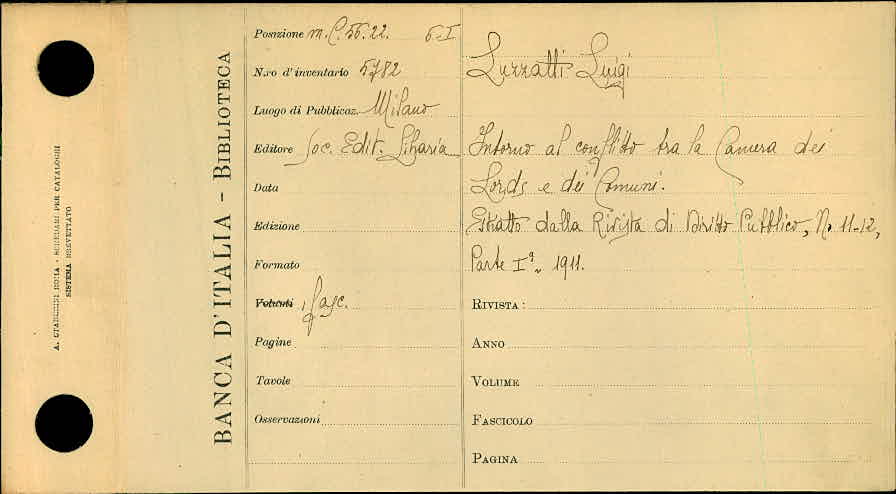 A. STADERINI ROMA - SCHEDARI PER CATALOGHI
SISTEMA BREVETTATO
BANCA D'ITALIA - BIBLIOTECA
Posizione m. C. 56. 22. 6-I
N.ro d'inventario 5782
Luogo di Pubblicaz. Milano
Editore Soc. Edit. Libraria
Data
Edizione
Formato
Volumi 1 fasc.
Pagine
Tavole
Osservazioni
Luzzatti Luigi
Intorno al conflitto tra la Camera dei
Lords e dei Comuni.
Estratto dalla Rivista di Diritto Pubblico, N. 11-12,
Parte Iª 1911.
RIVISTA:
ANNO
VOLUME
FASCICOLO
PAGINA